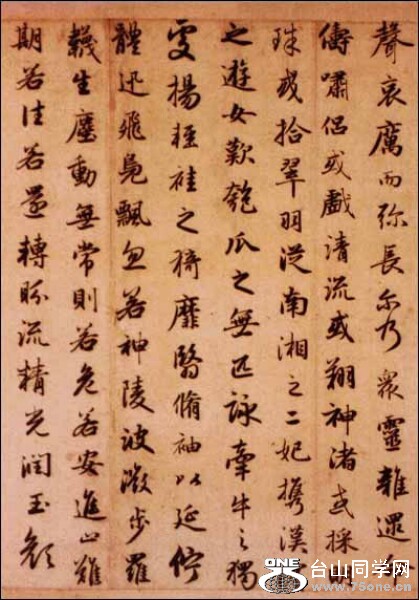 聲哀厲而弥長尔乃眾靈雜遝
儔嘯侶或戲清流或翔神渚或採
珠或拾翠羽從南湘之二妃攜漢
之遊女歎匏瓜之無匹詠牽牛之獨
處揚輕袿之猗靡翳脩袖以延佇
體迅飛鳧飄忽若神陵波微步羅
韈生塵動無常則若危若安進止難
期若往若還轉眄流精光潤玉顏
ONE
台山同学网
www.75one.com